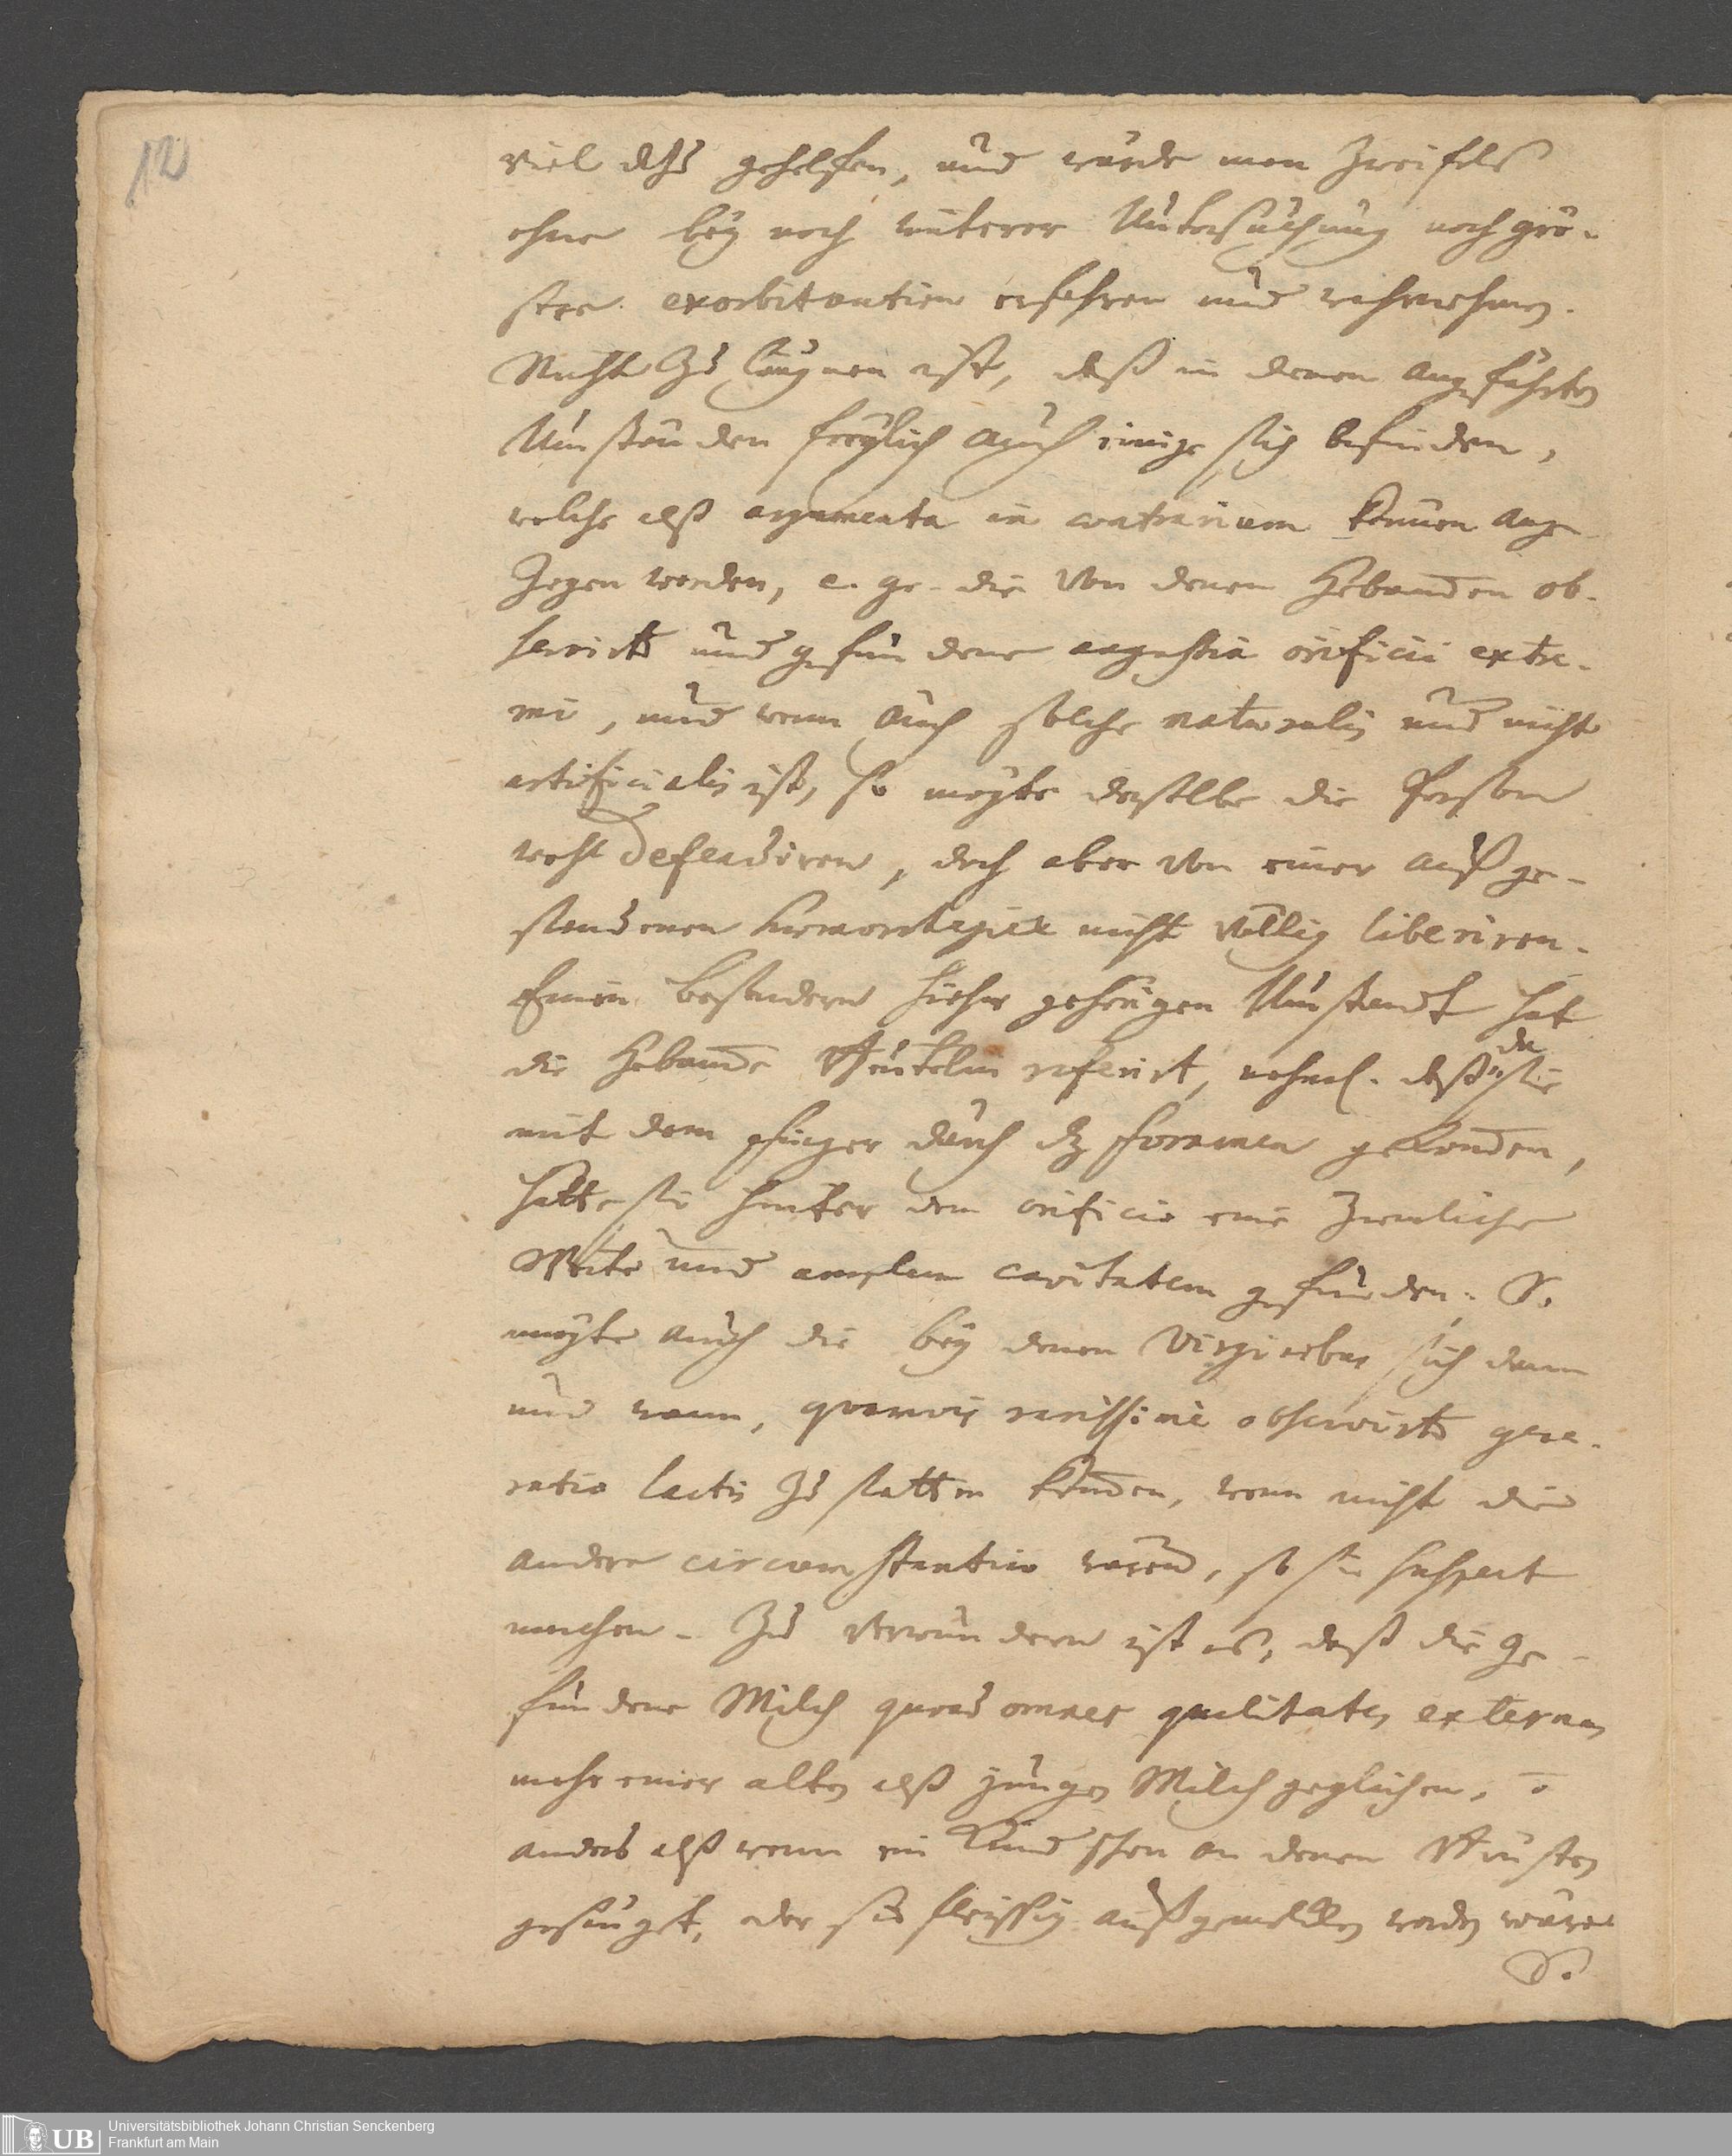 12
viel dazu geholfen, und würde man Zweifels
ohne bey noch weiterer Untersuchung noch grö-
ßere exorbitantien erfahren und wahrnehmen.
Nicht zu läugnen ist, daß in denen angeführten
Umständen freylich auch einige sich befinden,
welche alß argumenta in contrarium können ange-
zogen werden, e. g. die von denen Hebammen ob-
servirte und gefundene angustia orificii exter-
ni, und wenn auch solche naturalis und nicht
artificialis ist, so mögte dieselbe die Person
wohl defendiren, doch aber von einer außge-
standenen nicht völlig liberiren.
Einen besondern hieher gehörigen Umstandt hat
die Hebamme referirt, nehml. daß da sie
mit dem Finger durch dz foramen gekommen,
hätte sie hinter dem orificio eine ziemliche
Weite und amplam cavitatem gefunden. So
mögte auch die bey denen Virginibus sich dann
und wann, quamvis rarissimè observirte gene-
ratio lactis zu statten kommen, wenn nicht die
andere circumstantien wären, so sie suspect
machen. Zu verwundern ist es, daß die ge-
fundene Milch quoad omnes qualitates externas
mehr einer alten alß jungen Milch geglichen,
anders alß wenn ein Kind schon an denen Brüsten
gesäuget, oder sie fleissig außgemolcken worden wäre.
So
Universitätsbibliothek Johann Christian Senckenberg
UB Frankfurt am Main